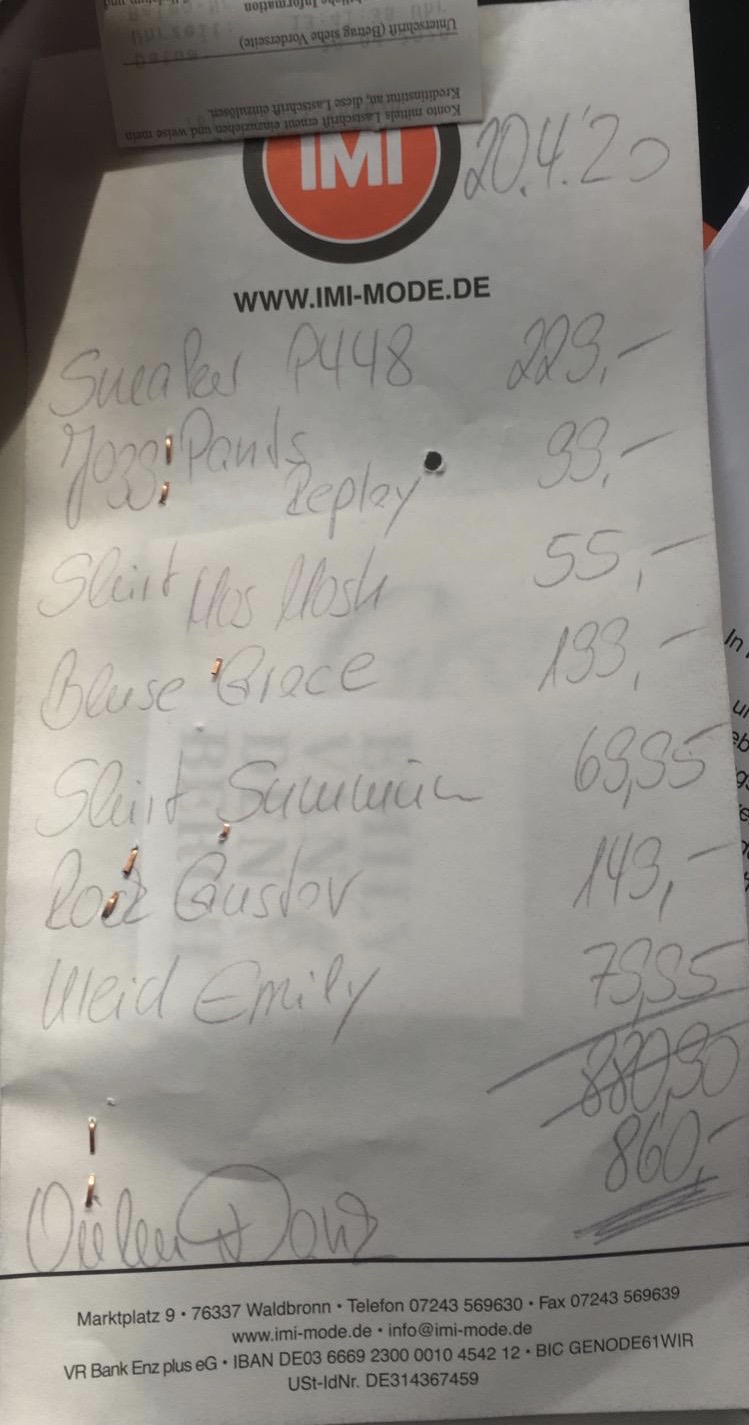 Konto mittels Lastschrift erneut einzuziehen und weise mein
Kreditinstitut an, diese Lastschrift einzulösen.
Unterschrift (Betrag siehe Vorderseite)
IMI 20.4.'20
WWW.IMI-MODE.DE
Sneaker P448 229,-
Joggi Pants 99,-
Replay
Shirt Mos Mosh 55,-
Bluse Grace 199,-
Shirt Summum 69,95
Rock Gustav 149,-
Kleid Emily 79,95
880,90
860,-
Vielen Dank
Marktplatz 9 • 76337 Waldbronn • Telefon 07243 569630 • Fax 07243 569639
www.imi-mode.de • info@imi-mode.de
VR Bank Enz plus eG • IBAN DE03 6669 2300 0010 4542 12 • BIC GENODE61WIR
USt-IdNr. DE314367459